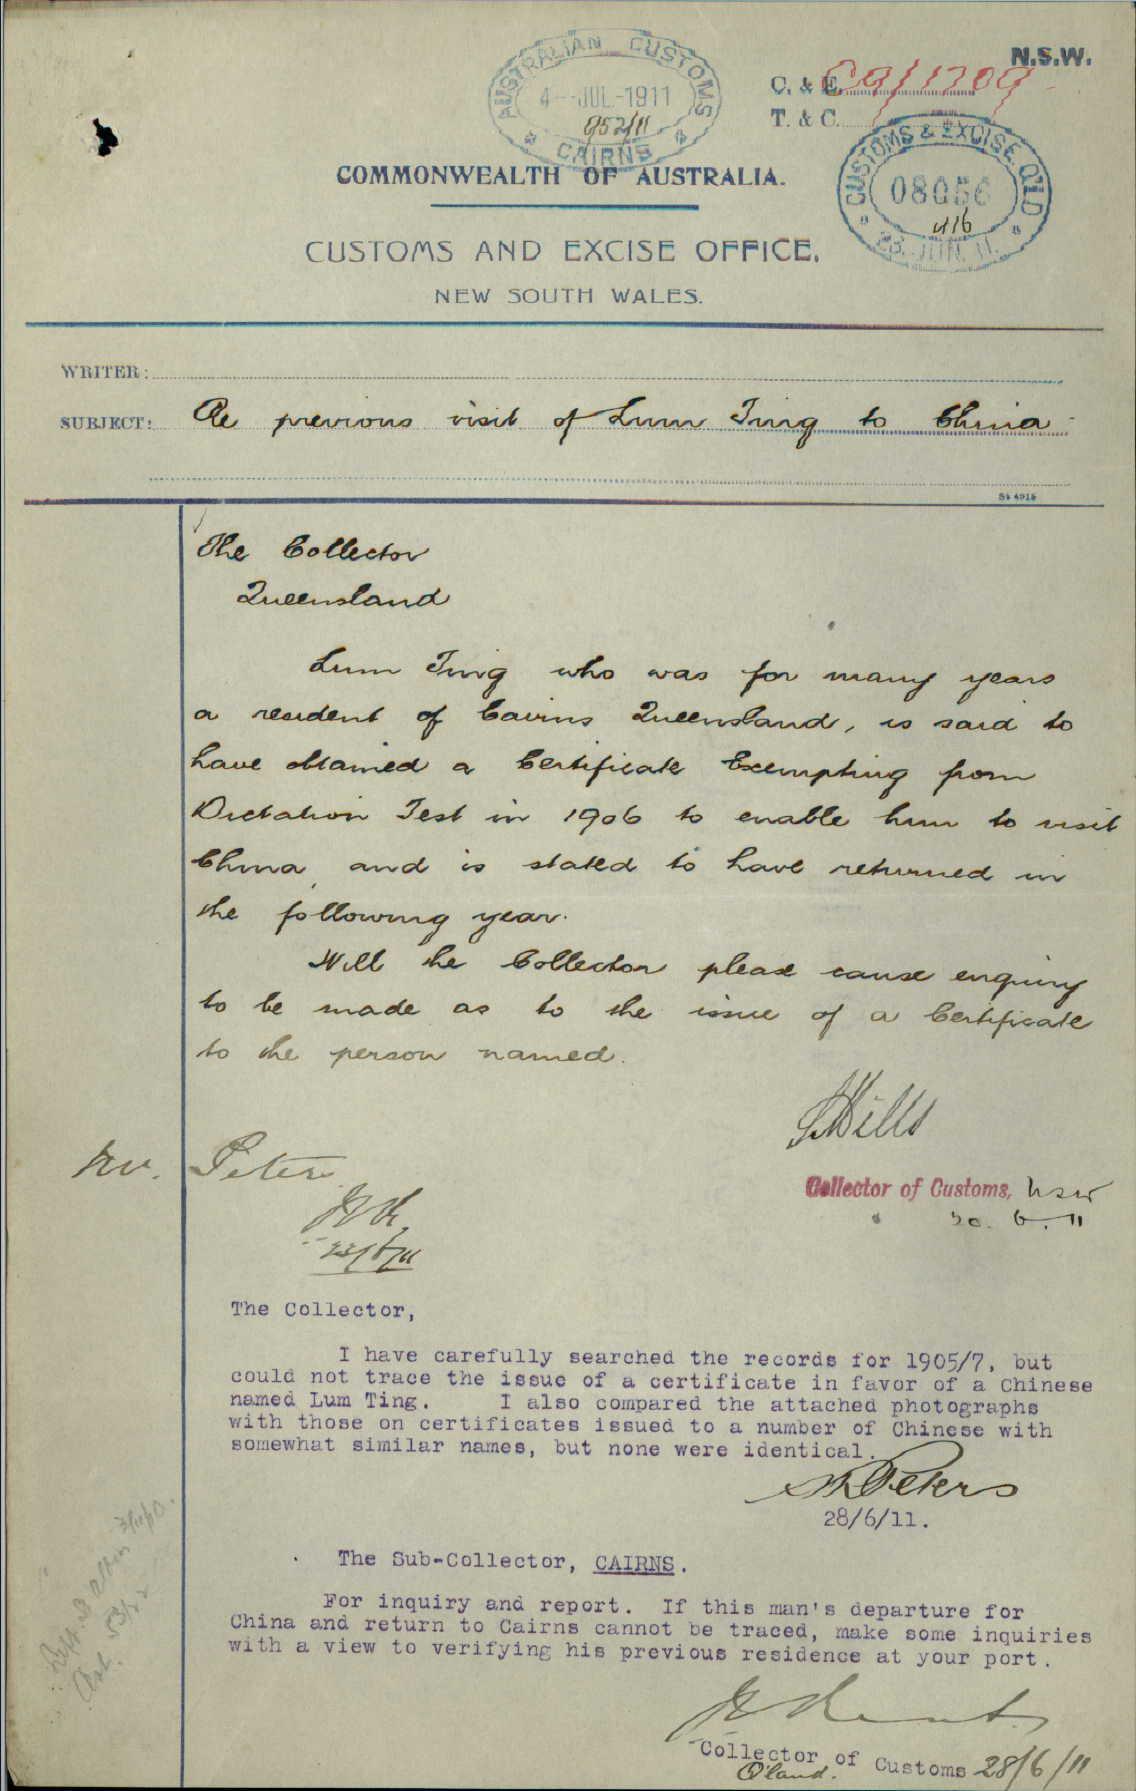 N.S.W.
AUSTRALIAN CUSTOMS
4--JUL.-1911
952/11
CAIRNS
C. & E. C9/1709
T. & C.
CUSTOMS & EXCISE, Q'LD
08056
23. JUN. 11.
COMMONWEALTH OF AUSTRALIA.
CUSTOMS AND EXCISE OFFICE.
NEW SOUTH WALES.
WRITER:
SUBJECT: Re previous visit of Lum Ting to China
St 4915
The Collector
Queensland
Lum Ting who was for many years
a resident of Cairns Queensland, is said to
have obtained a Certificate Exempting from
Dictation Test in 1906 to enable him to visit
China, and is stated to have returned in
the following year.
Will the Collector please cause enquiry
to be made as to the issue of a Certificate
to the person named.
Mills
Collector of Customs, NSW
20.6.11
Peters
23/6/11
The Collector,
I have carefully searched the records for 1905/7, but
could not trace the issue of a certificate in favor of a Chinese
named Lum Ting. I also compared the attached photographs
with those on certificates issued to a number of Chinese with
somewhat similar names, but none were identical.
Peters
28/6/11.
The Sub-Collector, CAIRNS.
For inquiry and report. If this man's departure for
China and return to Cairns cannot be traced, make some inquiries
with a view to verifying his previous residence at your port.
Collector of Customs 28/6/11
Q'land.